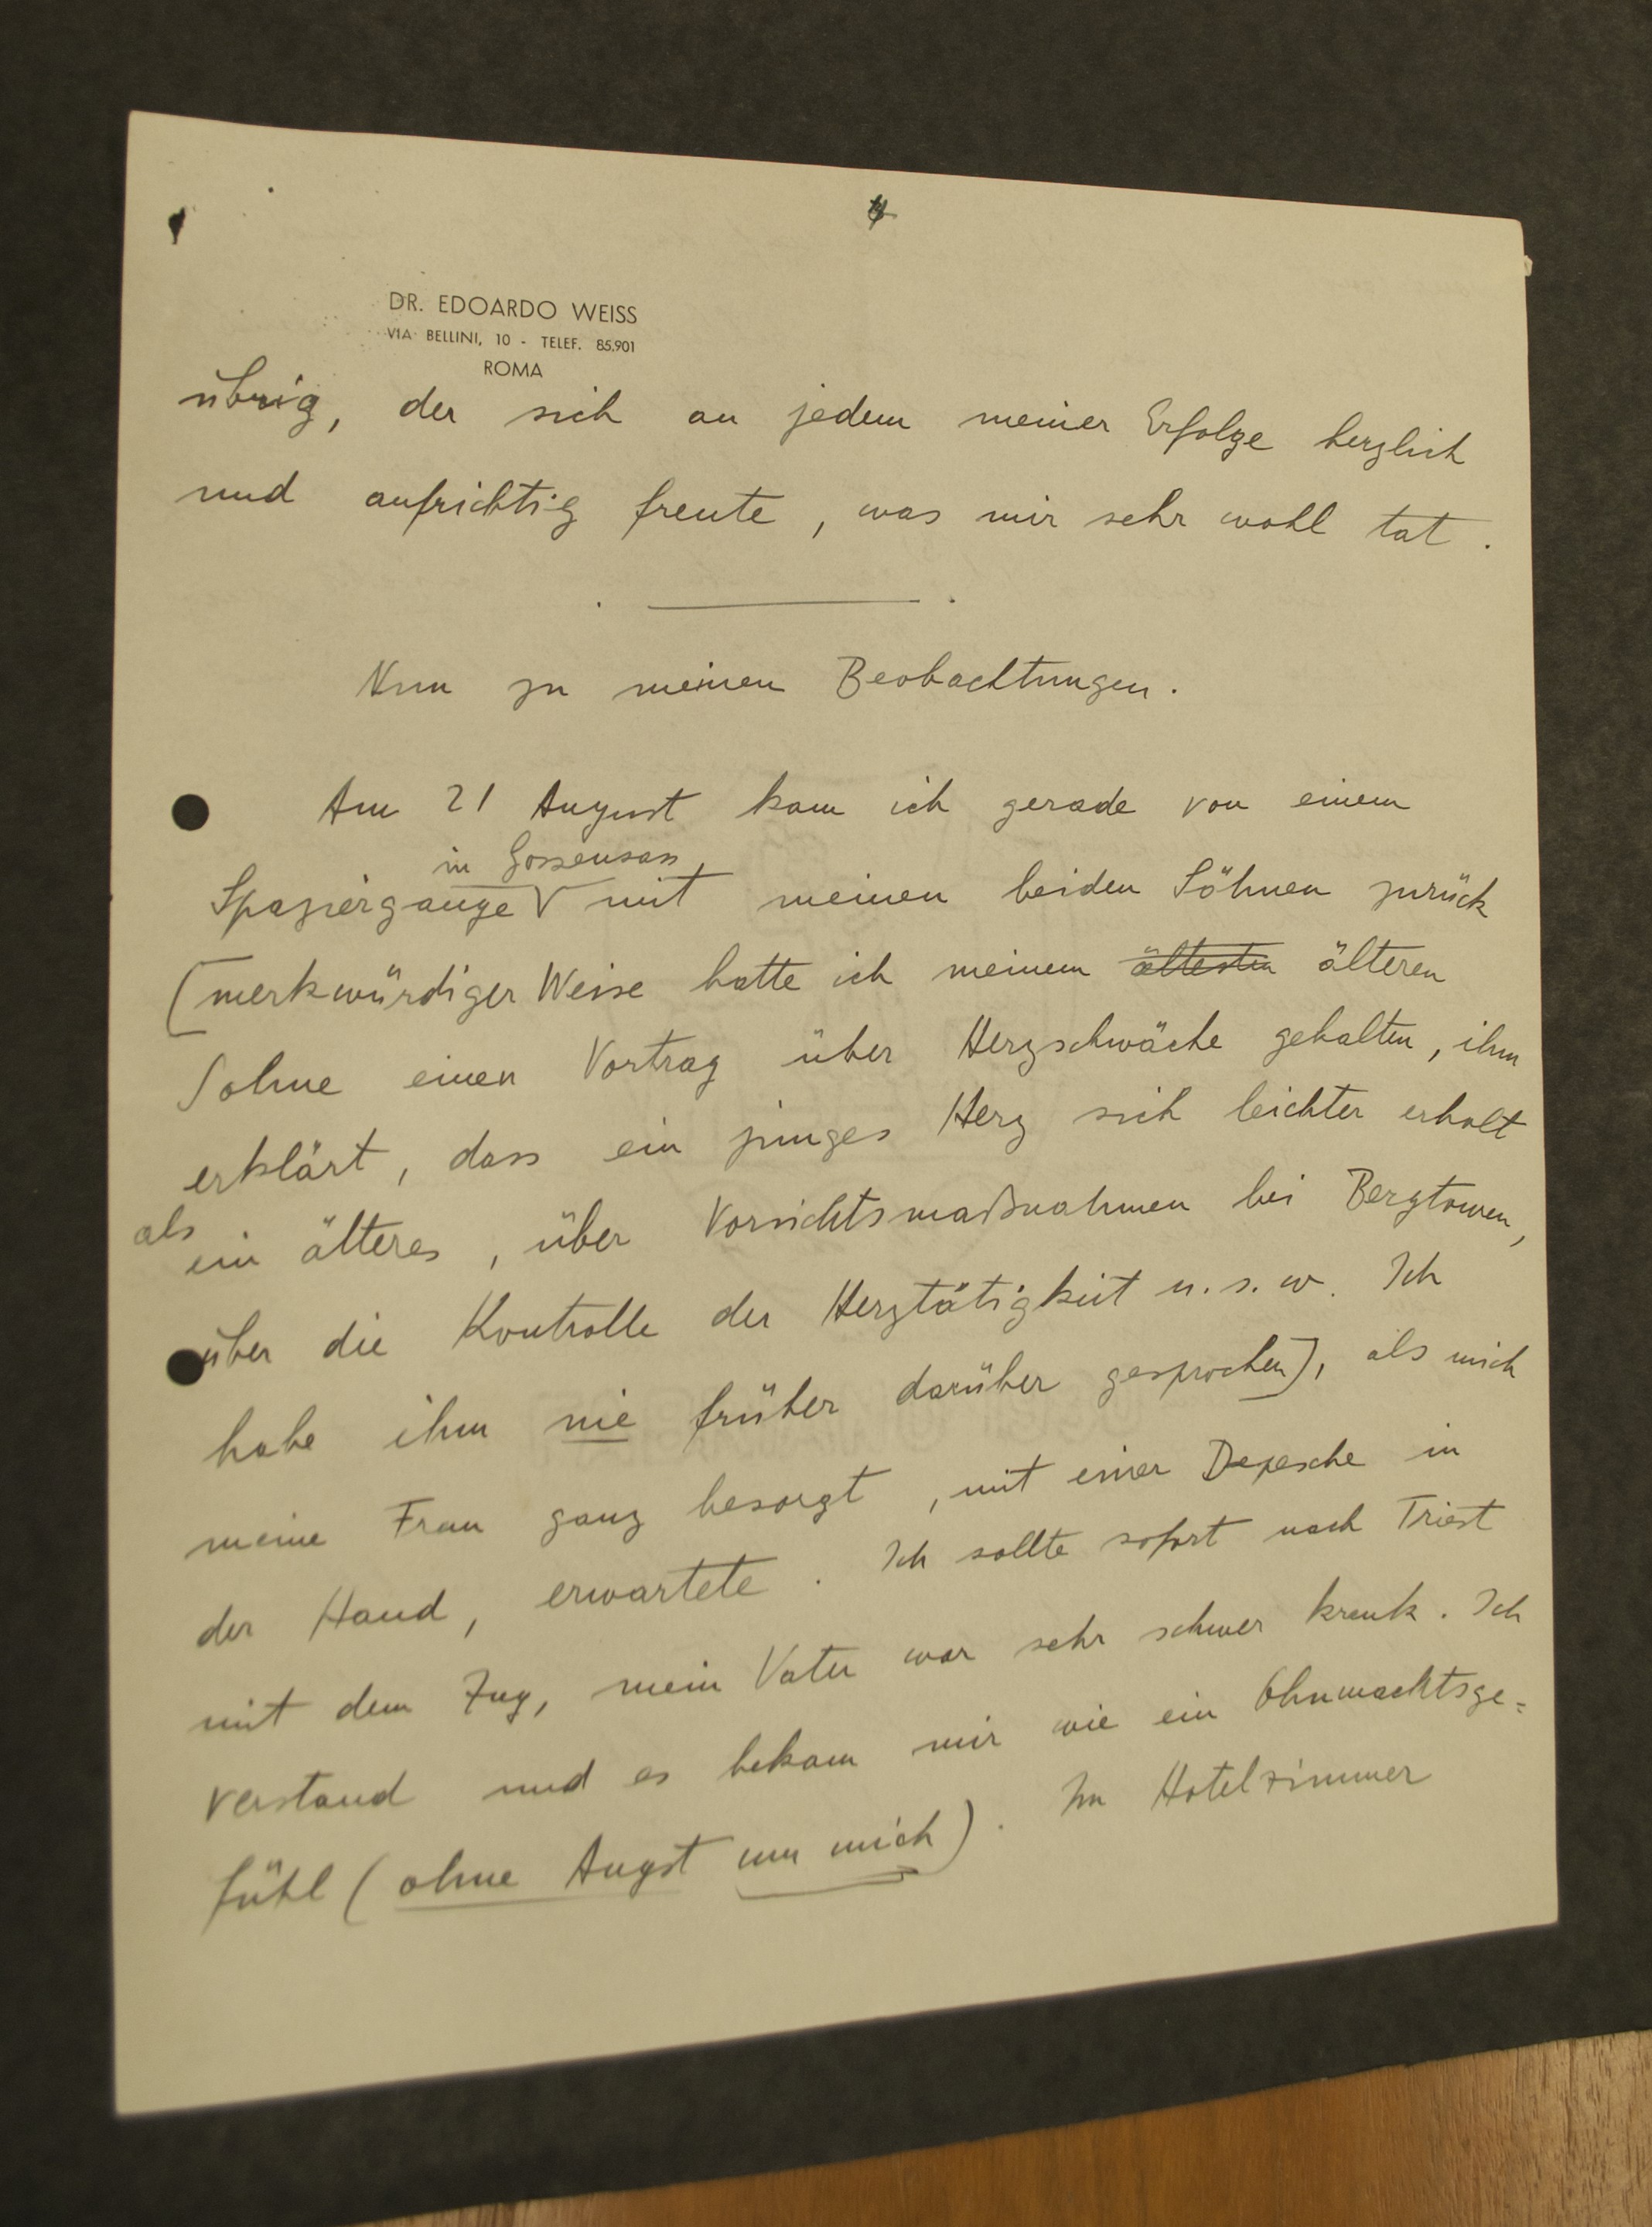 4
DR. EDOARDO WEISS
VIA BELLINI, 10 - TELEF. 85.901
ROMA
übrig, der sich an jedem meiner Erfolge herzlich
und aufrichtig freute, was mir sehr wohl tat.
Nun zu meinen Beobachtungen.
Am 21 August kam ich gerade von einem
in Gossensass
Spaziergange mit meinen beiden Söhnen zurück
(merkwürdiger Weise hatte ich meinem ältesten älteren
Sohne einen Vortrag über Herzschwäche gehalten, ihm
erklärt, dass ein junges Herz sich leichter erholt
als
ein älteres, über Vorsichtsmaßnahmen bei Bergtouren,
über die Kontrolle der Herztätigkeit u.s.w. Ich
habe ihm nie früher darüber gesprochen), als mich
meine Frau ganz besorgt, mit einer Depesche in
der Hand, erwartete. Ich sollte sofort nach Triest
mit dem Zug, mein Vater war sehr schwer krank. Ich
verstand und es bekam mir wie ein Ohnmachtsge=
fühl (ohne Angst um mich). Im Hotelzimmer